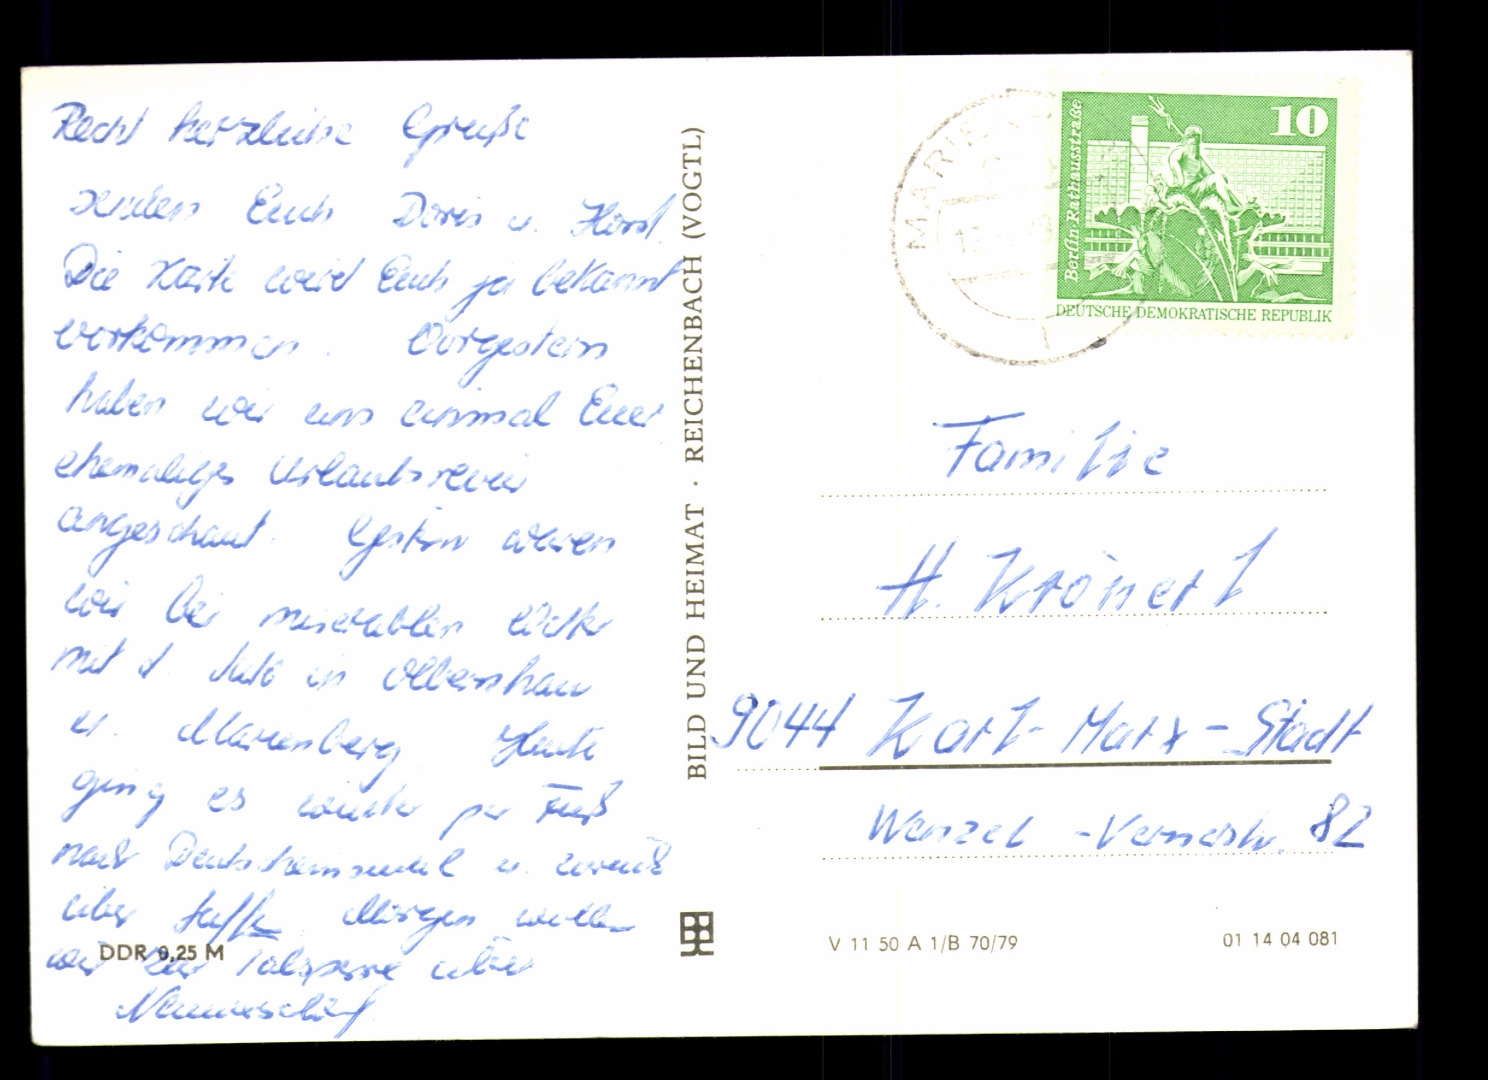 Recht herzliche Grüße
senden Euch Doris u. Horst.
Die Karte wird Euch ja bekannt
vorkommen. Vorgestern
haben wir uns einmal Euer
ehemaliges Urlaubsrevier
angeschaut. Gestern waren
wir bei miserablen Wetter
mit d. Auto in Olbernhau
u. Marienberg. Heute
ging es wieder per Fuß
nach Deutscheinsiedel u. zurück
über Morgen wollen
wir zur Talsperre über
DDR 0,25 M
BILD UND HEIMAT · REICHENBACH (VOGTL)
10
Berlin-Rathausstraße
DEUTSCHE DEMOKRATISCHE REPUBLIK
Familie
H. Krönert
9044 Karl-Marx-Stadt
Wenzel-Vernerstr. 82
V 11 50 A 1/B 70/79
01 14 04 081